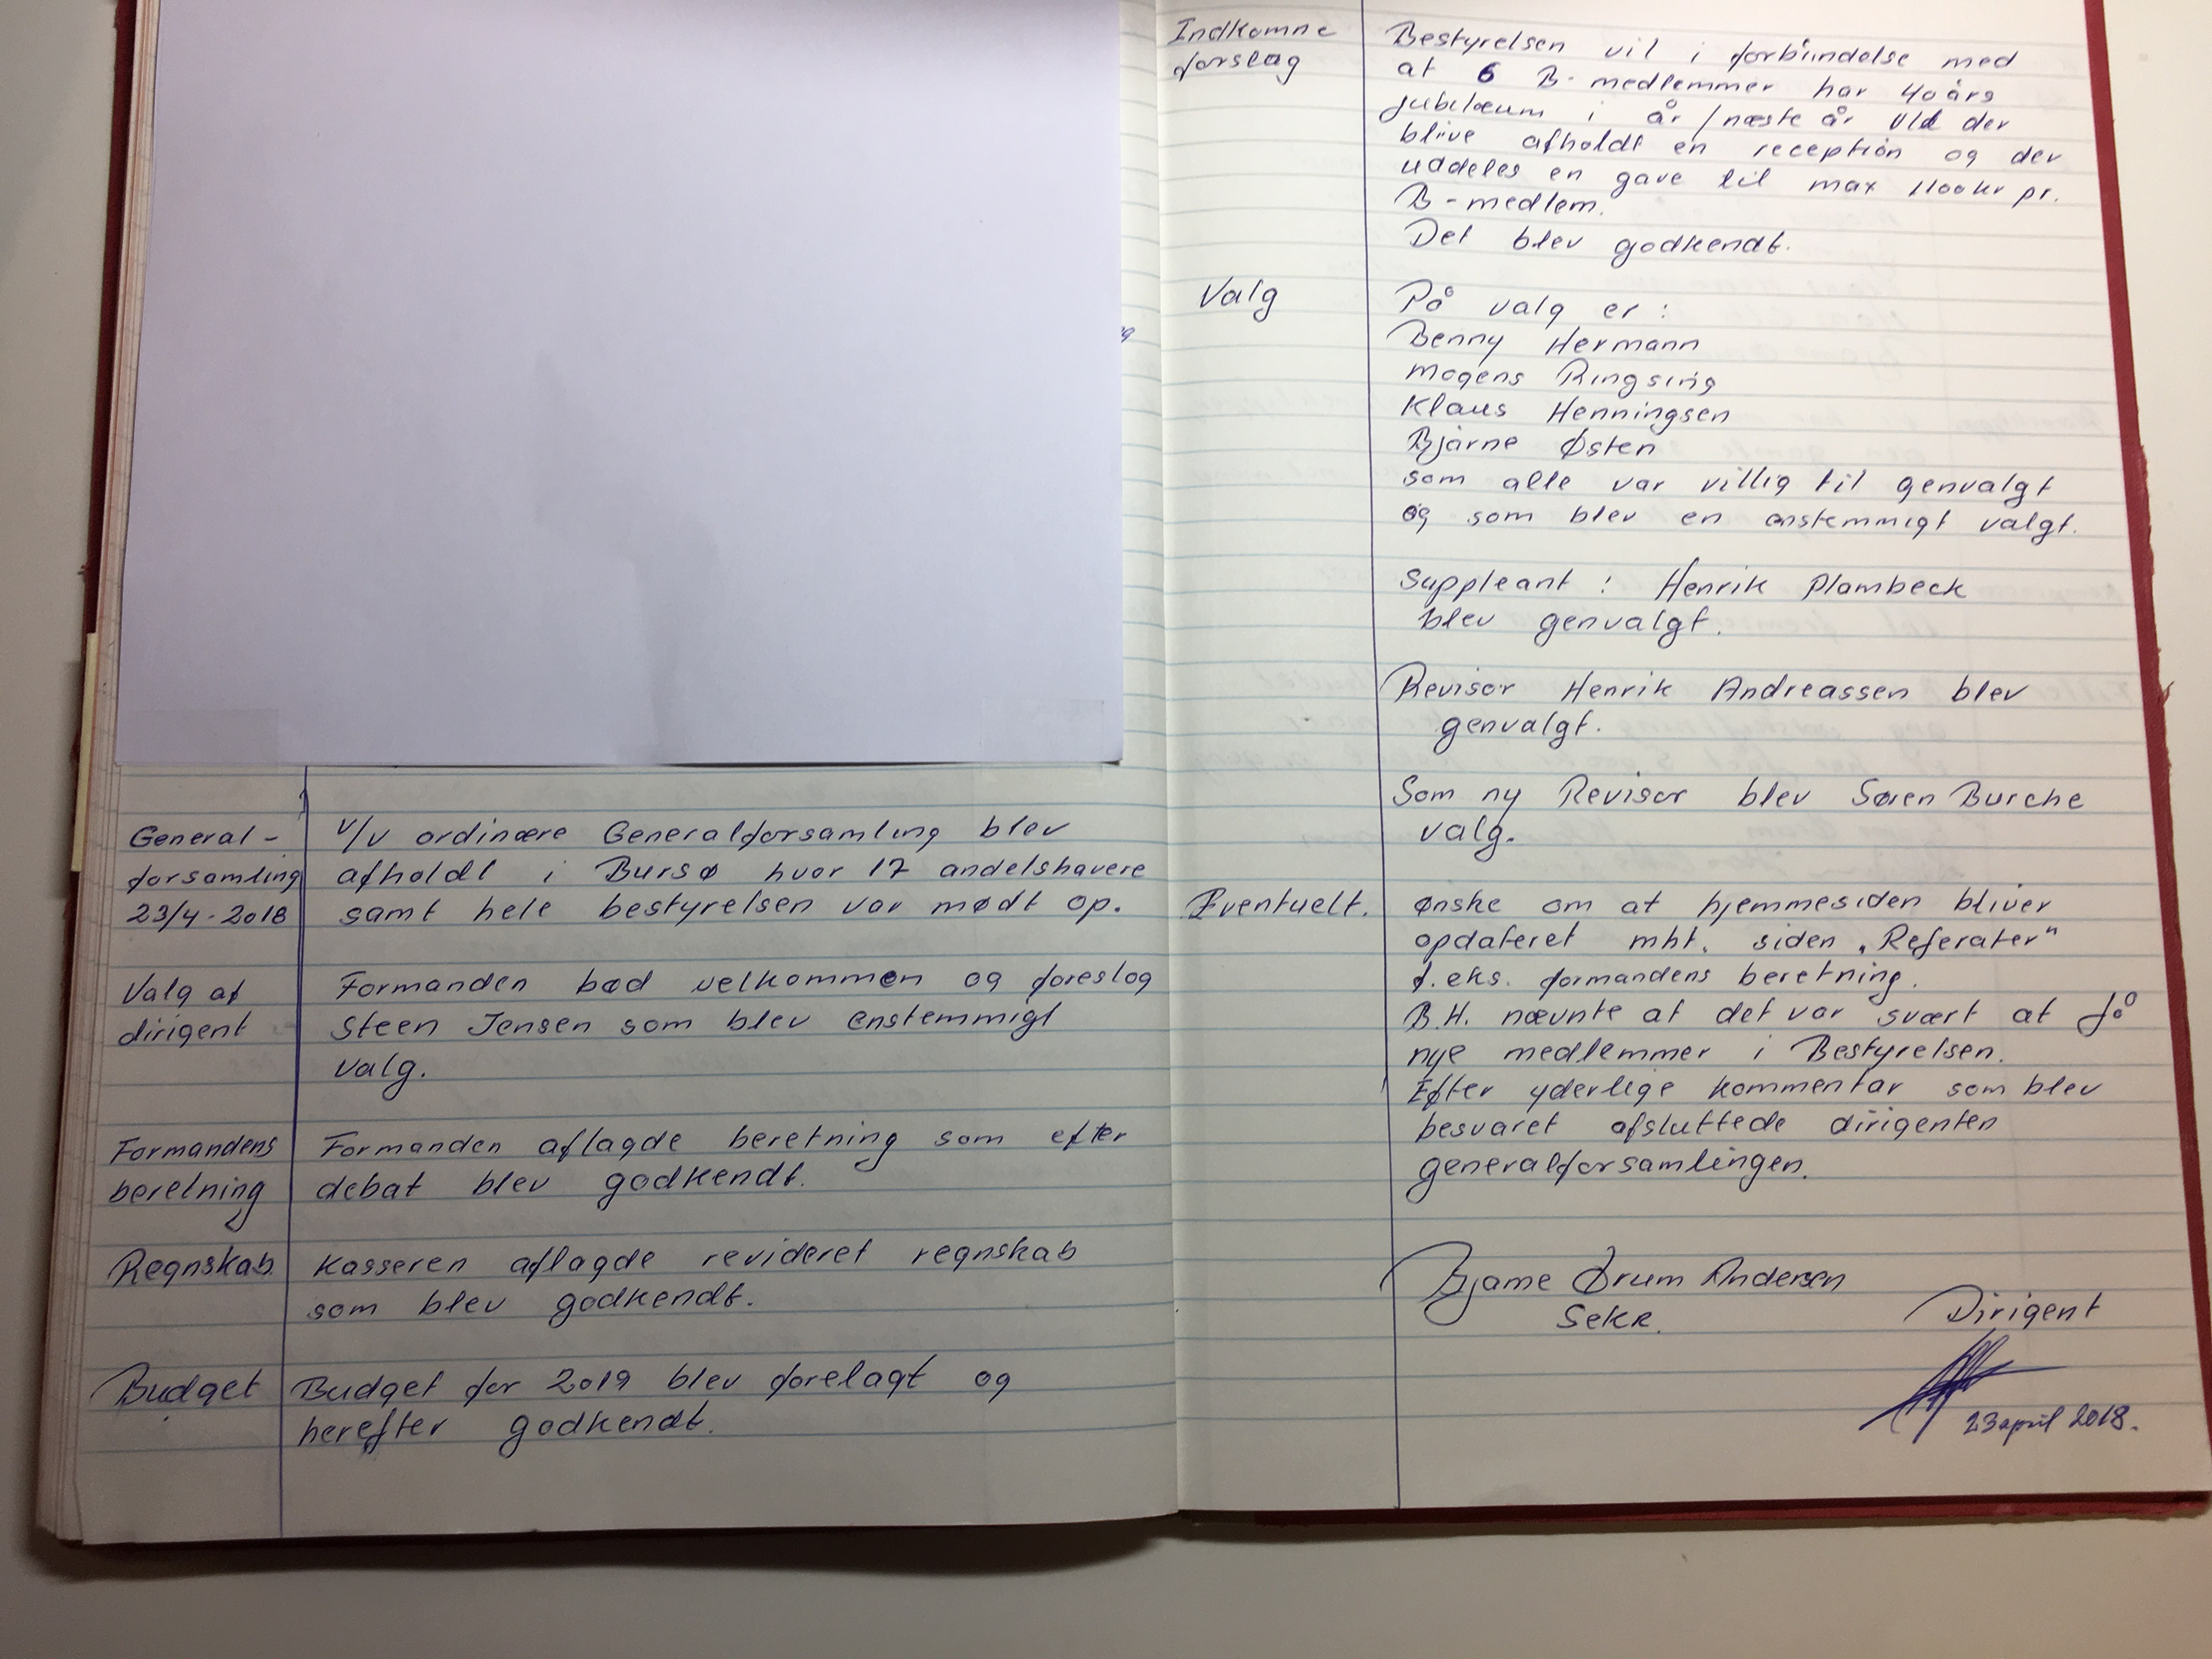 General-
forsamling
23/4-2018
V/V ordinære Generalforsamling blev
afholdt i Bursø hvor 17 andelshavere
samt hele bestyrelsen var mødt op.
Valg af
dirigent
Formanden bød velkommen og foreslog
Steen Jensen som blev enstemmigt
valg.
Formandens
beretning
Formanden aflagde beretning som efter
debat blev godkendt.
Regnskab
Kasseren aflagde revideret regnskab
som blev godkendt.
Budget
Budget for 2019 blev forelagt og
herefter godkendt.
Indkomne
forslag
Bestyrelsen vil i forbindelse med
at 6 B-medlemmer har 40 års
jubilæum i år/næste år vil der
blive afholdt en reception og der
uddeles en gave til max 1100 kr pr.
B-medlem.
Det blev godkendt.
Valg
På valg er:
Benny Hermann
Mogens Ringsing
Klaus Henningsen
Bjarne Østen
som alle var villig til genvalgt
og som blev en enstemmigt valgt.
Suppleant: Henrik Plambeck
blev genvalgt.
Revisor Henrik Andreassen blev
genvalgt.
Som ny Revisor blev Søren Burche
valg.
Eventuelt.
Ønske om at hjemmesiden bliver
opdateret mht. siden „Referater"
f.eks. formandens beretning.
B.H. nævnte at det var svært at få
nye medlemmer i Bestyrelsen.
Efter yderlige kommentar som blev
besvaret afsluttede dirigenten
generalforsamlingen.
Bjarne Ørum Andersen
Sekr.
Dirigent
23 april 2018.